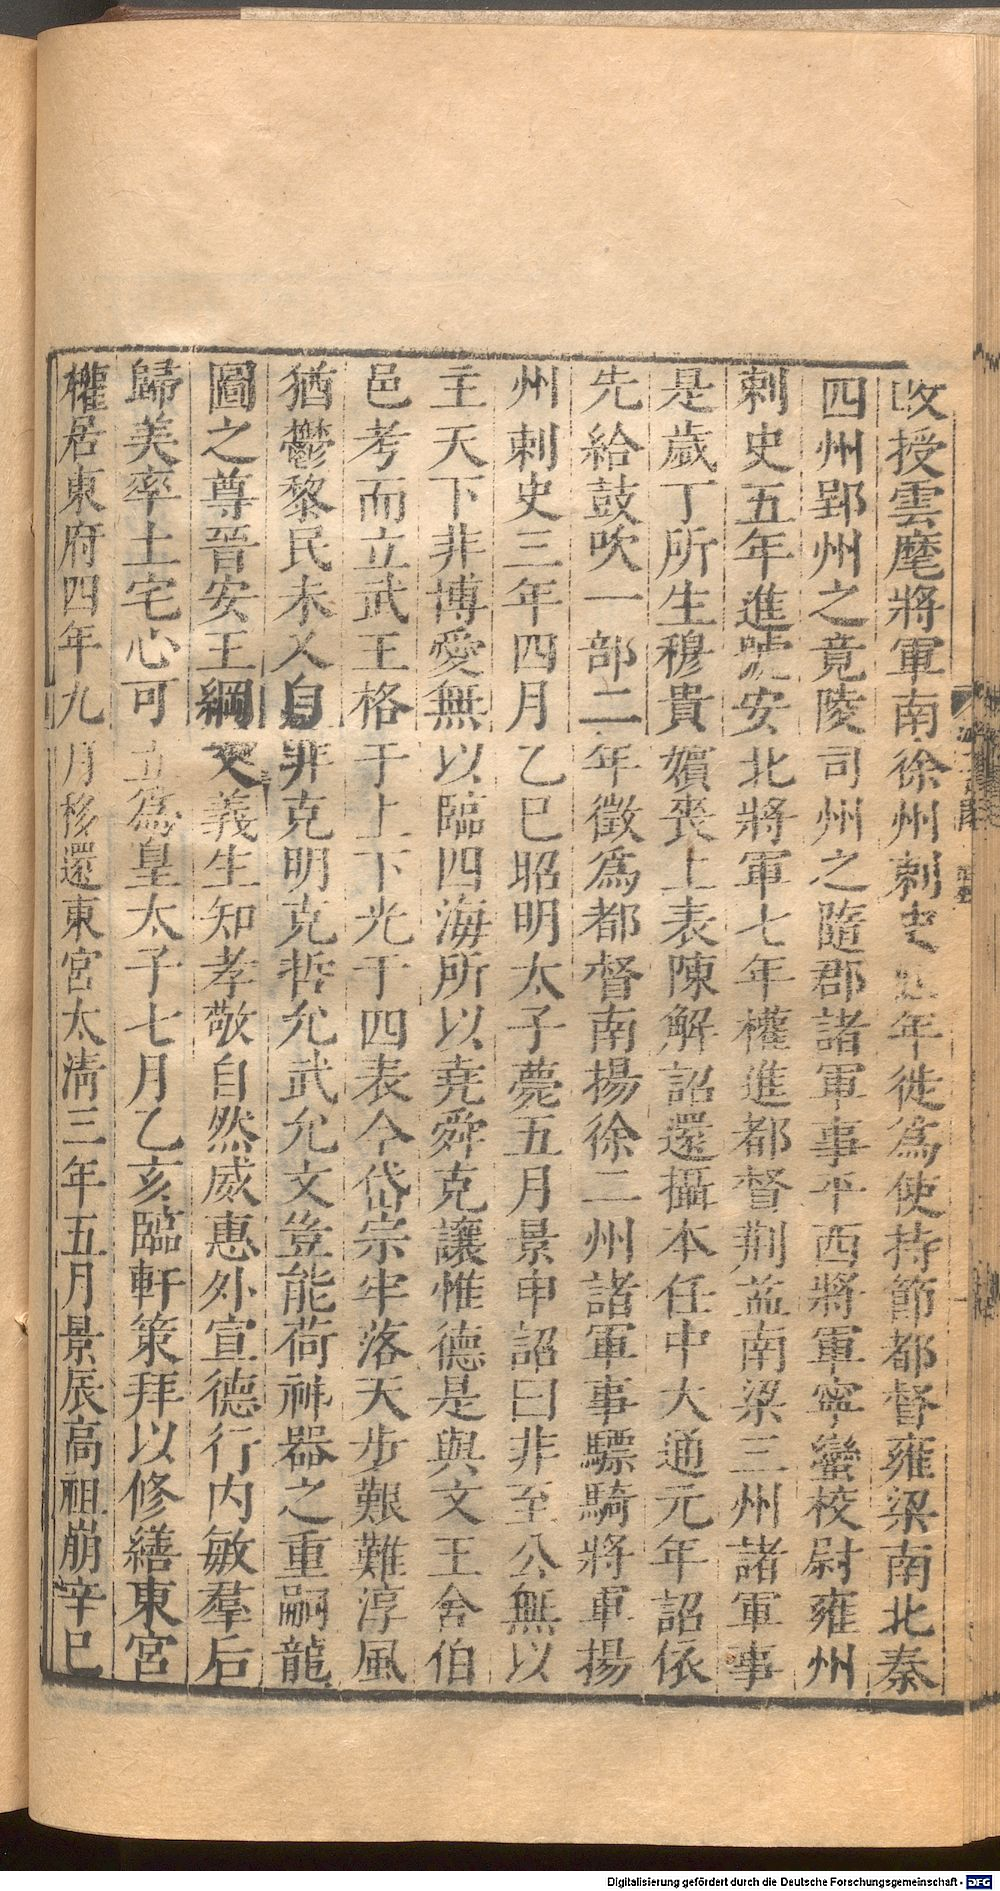 收授雲麾將軍南徐州刺史四年徙為使持節都督雍梁南北秦
四州郢州之竟陵司州之隨郡諸軍事平西將軍寧蠻校尉雍州
刺史五年進號安北將軍七年權進都督荊益南梁三州諸軍事
是歲丁所生穆貴嬪喪上表陳解詔還攝本任中大通元年詔依
先給鼓吹一部二年徵為都督南揚徐二州諸軍事驃騎將軍揚
州刺史三年四月乙巳昭明太子薨五月景申詔曰非至公無以
主天下非博愛無以臨四海所以堯舜克讓惟德是與文王舍伯
邑考而立武王格于上下光于四表今岱宗牢落天步艱難淳風
猶鬱黎民未乂自非克明克哲允武允文豈能荷神器之重嗣龍
圖之尊晉安王綱文義生知孝敬自然威惠外宣德行內敏羣后
歸美率土宅心可立為皇太子七月乙亥臨軒策拜以修繕東宮
權居東府四年九月移還東宮太清三年五月景辰高祖崩辛巳
Digitalisierung gefördert durch die Deutsche Forschungsgemeinschaft - DFG